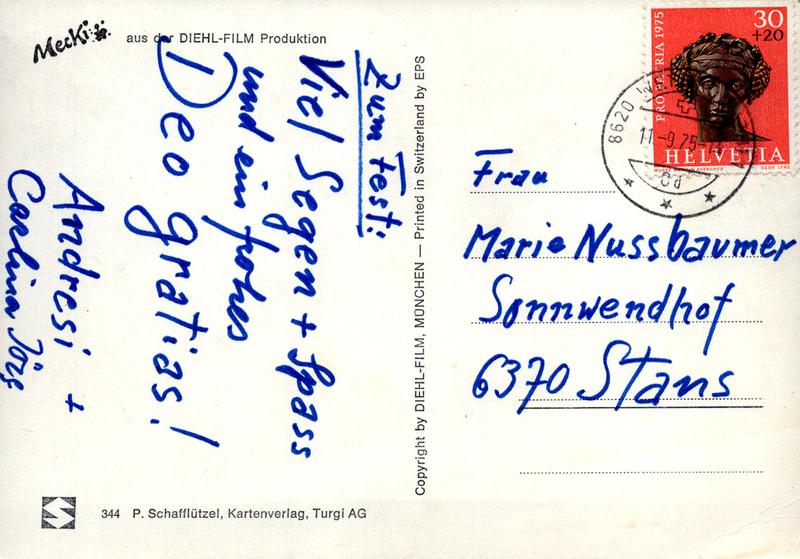 Mecki
aus der DIEHL-FILM Produktion
Zum Fest:
Viel Segen + Spass
und ein frohes
Deo gratias!
Andresi +
Carlina Jörg
344 P. Schafflützel, Kartenverlag, Turgi AG
Copyright by DIEHL-FILM, MÜNCHEN — Printed in Switzerland by EPS
PRO PATRIA 1975
30
+20
HELVETIA
8620
11.-9.75-
Frau
Marie Nussbaumer
Sonnwendhof
6370 Stans